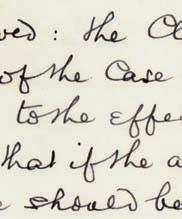 ved: the Cl
of the Case
to the effe
that if the a
e should be